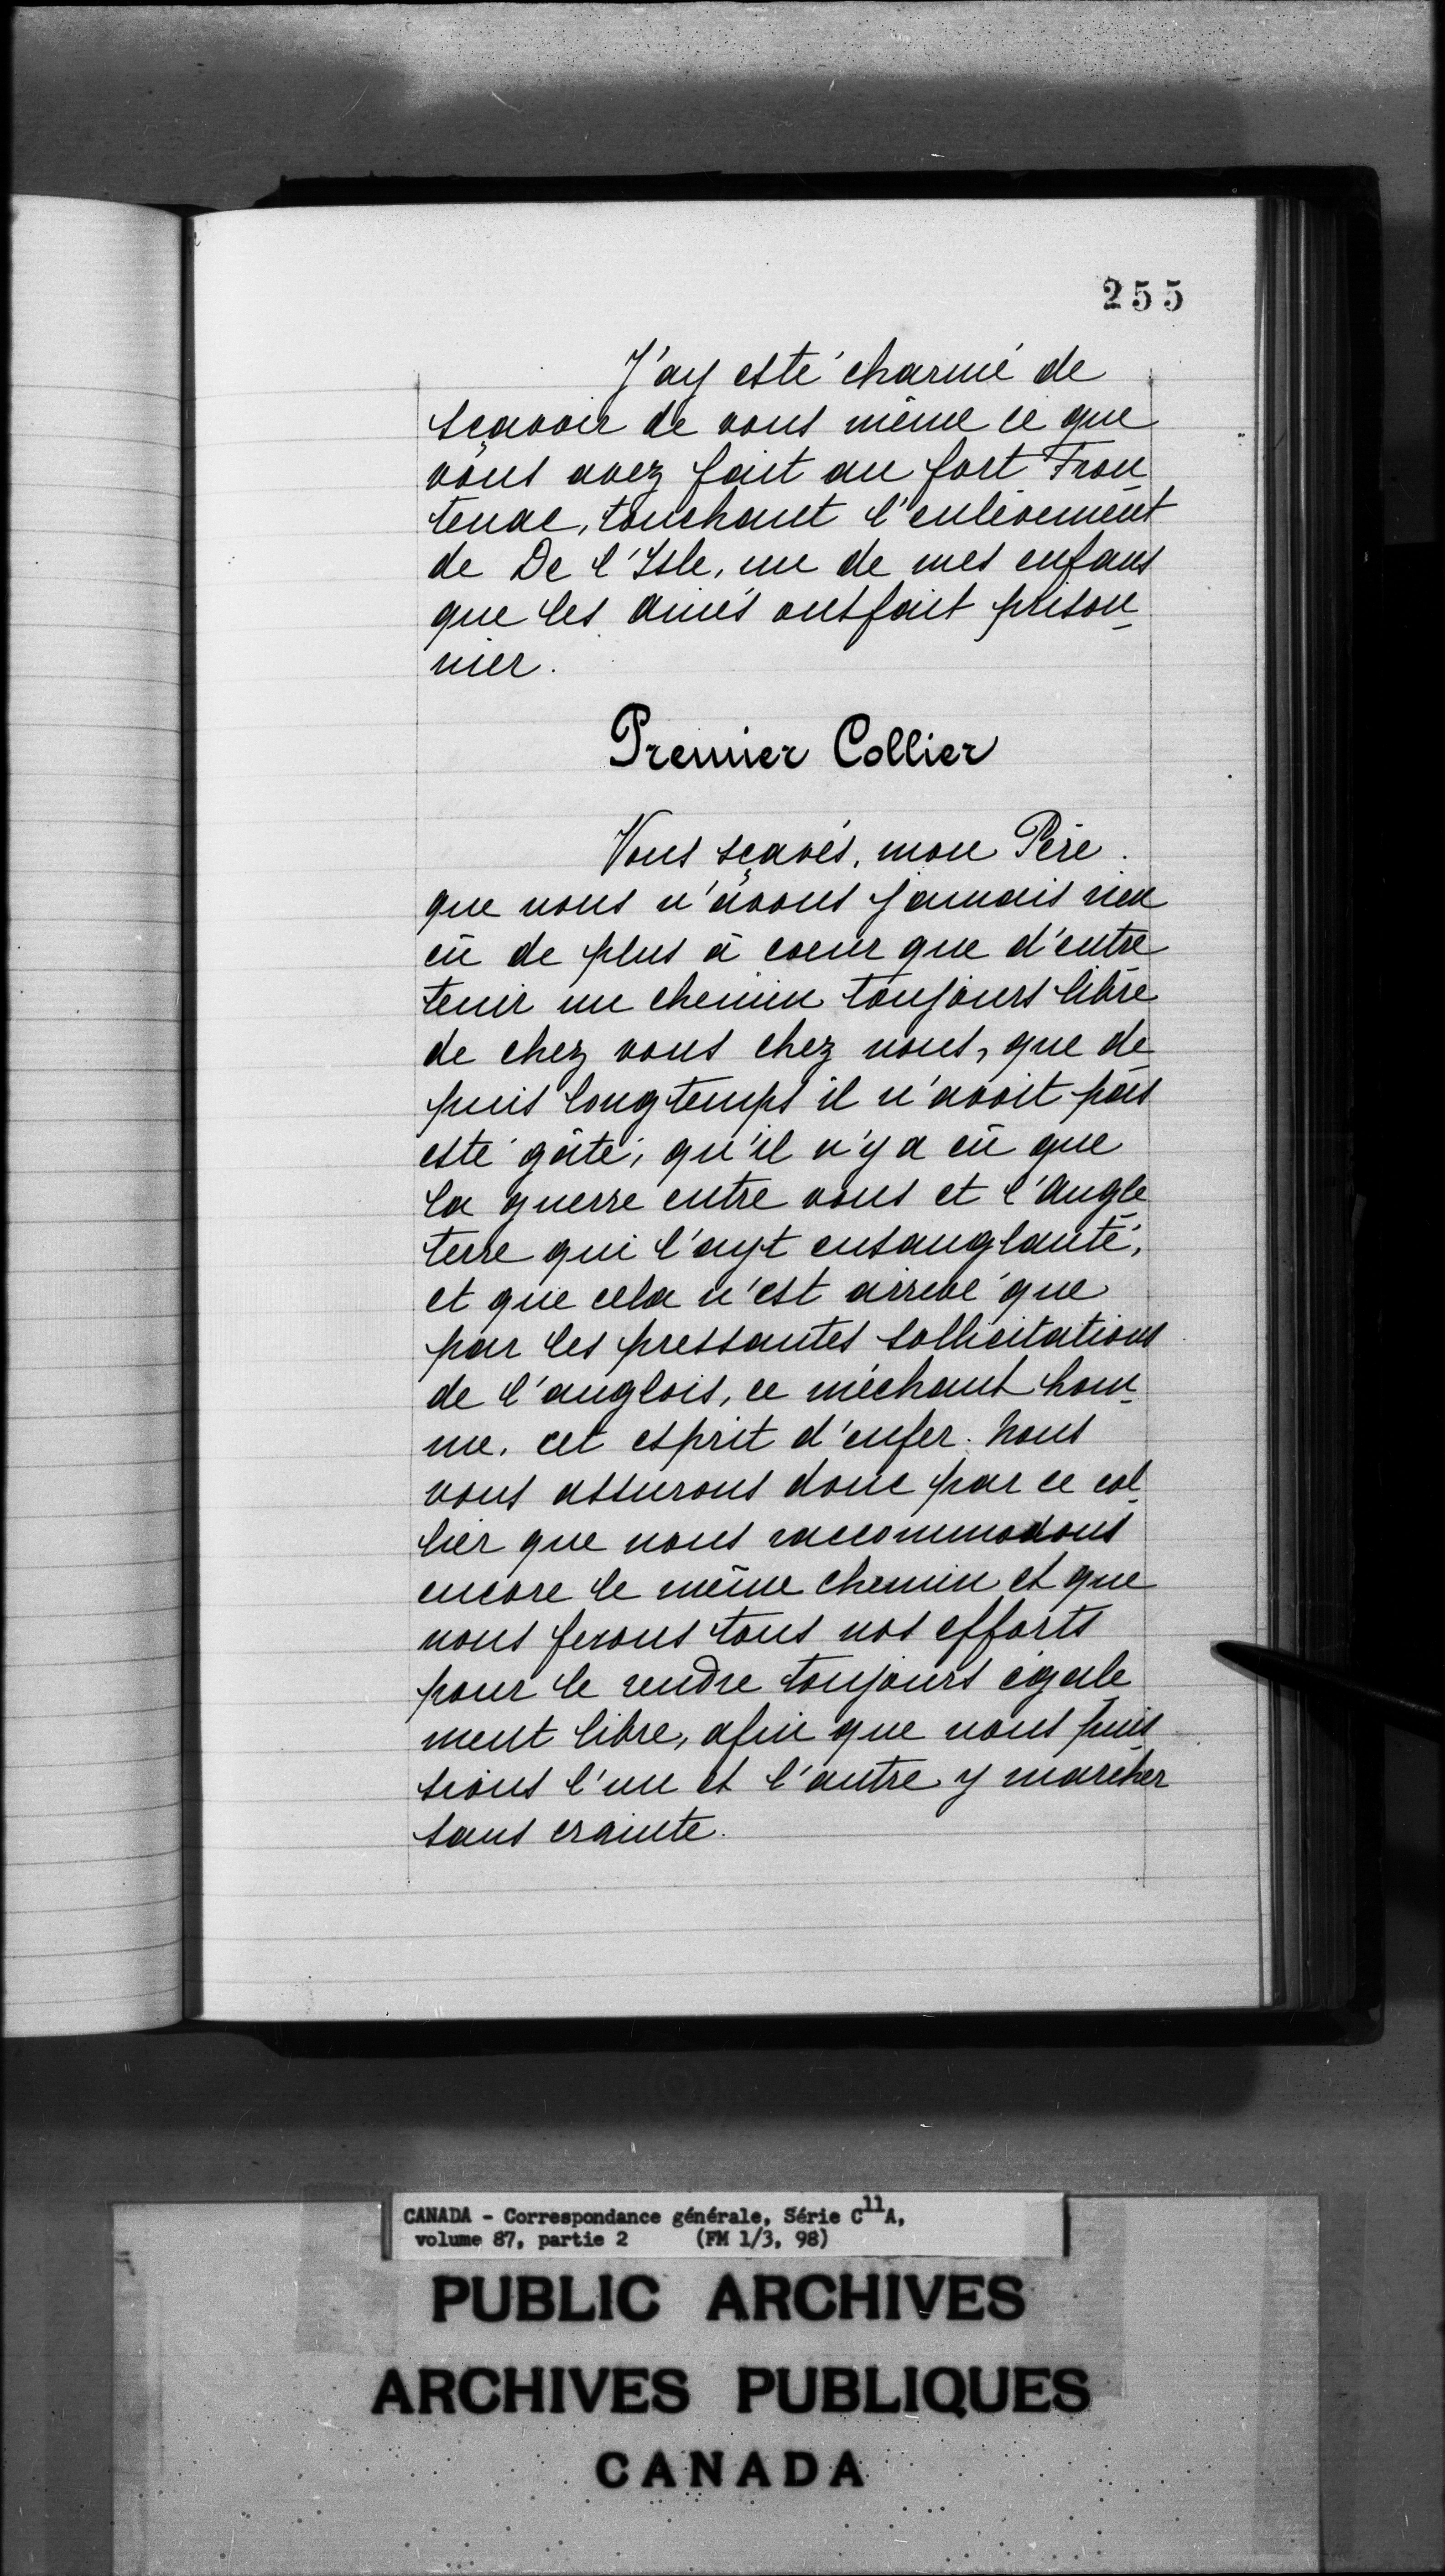 255
J'ay esté charmé de
sçavoir de vous même ce que
vous avez fait au fort Fron
tenac, touchant l'enlèvement
de De l'Isle, un de mes enfans
que les aniés ont fait prison_
nier.
Premier Collier
Vous sçavés, mon Père.
que nous n'avons jamais rien
eû de plus à coeur que d'entre
tenir un chemin toujours libre
de chez vous chez nous, que de
puis longtemps il n'avoit pas
esté gâté, qu'il n'y a eû que
la guerre entre vous et l'Angle
terre qui l'ayt ensanglanté,
et que cela n'est arrivé que
par les pressantes sollicitations
de l'anglois, ce méchant hom_
me. cet esprit d'enfer. Nous
vous assurons donc par ce col_
lier que nous raccommodons
encore le même chemin et que
nous ferons tous nos efforts
pour le rendre toujours égale
ment libre, afin que nous puis_
sions l'un et l'autre y marcher
sans crainte.
CANADA - Correspondance générale, Série C11A,
volume 87, partie 2 (FM 1/3, 98)
PUBLIC ARCHIVES
ARCHIVES PUBLIQUES
CANADA